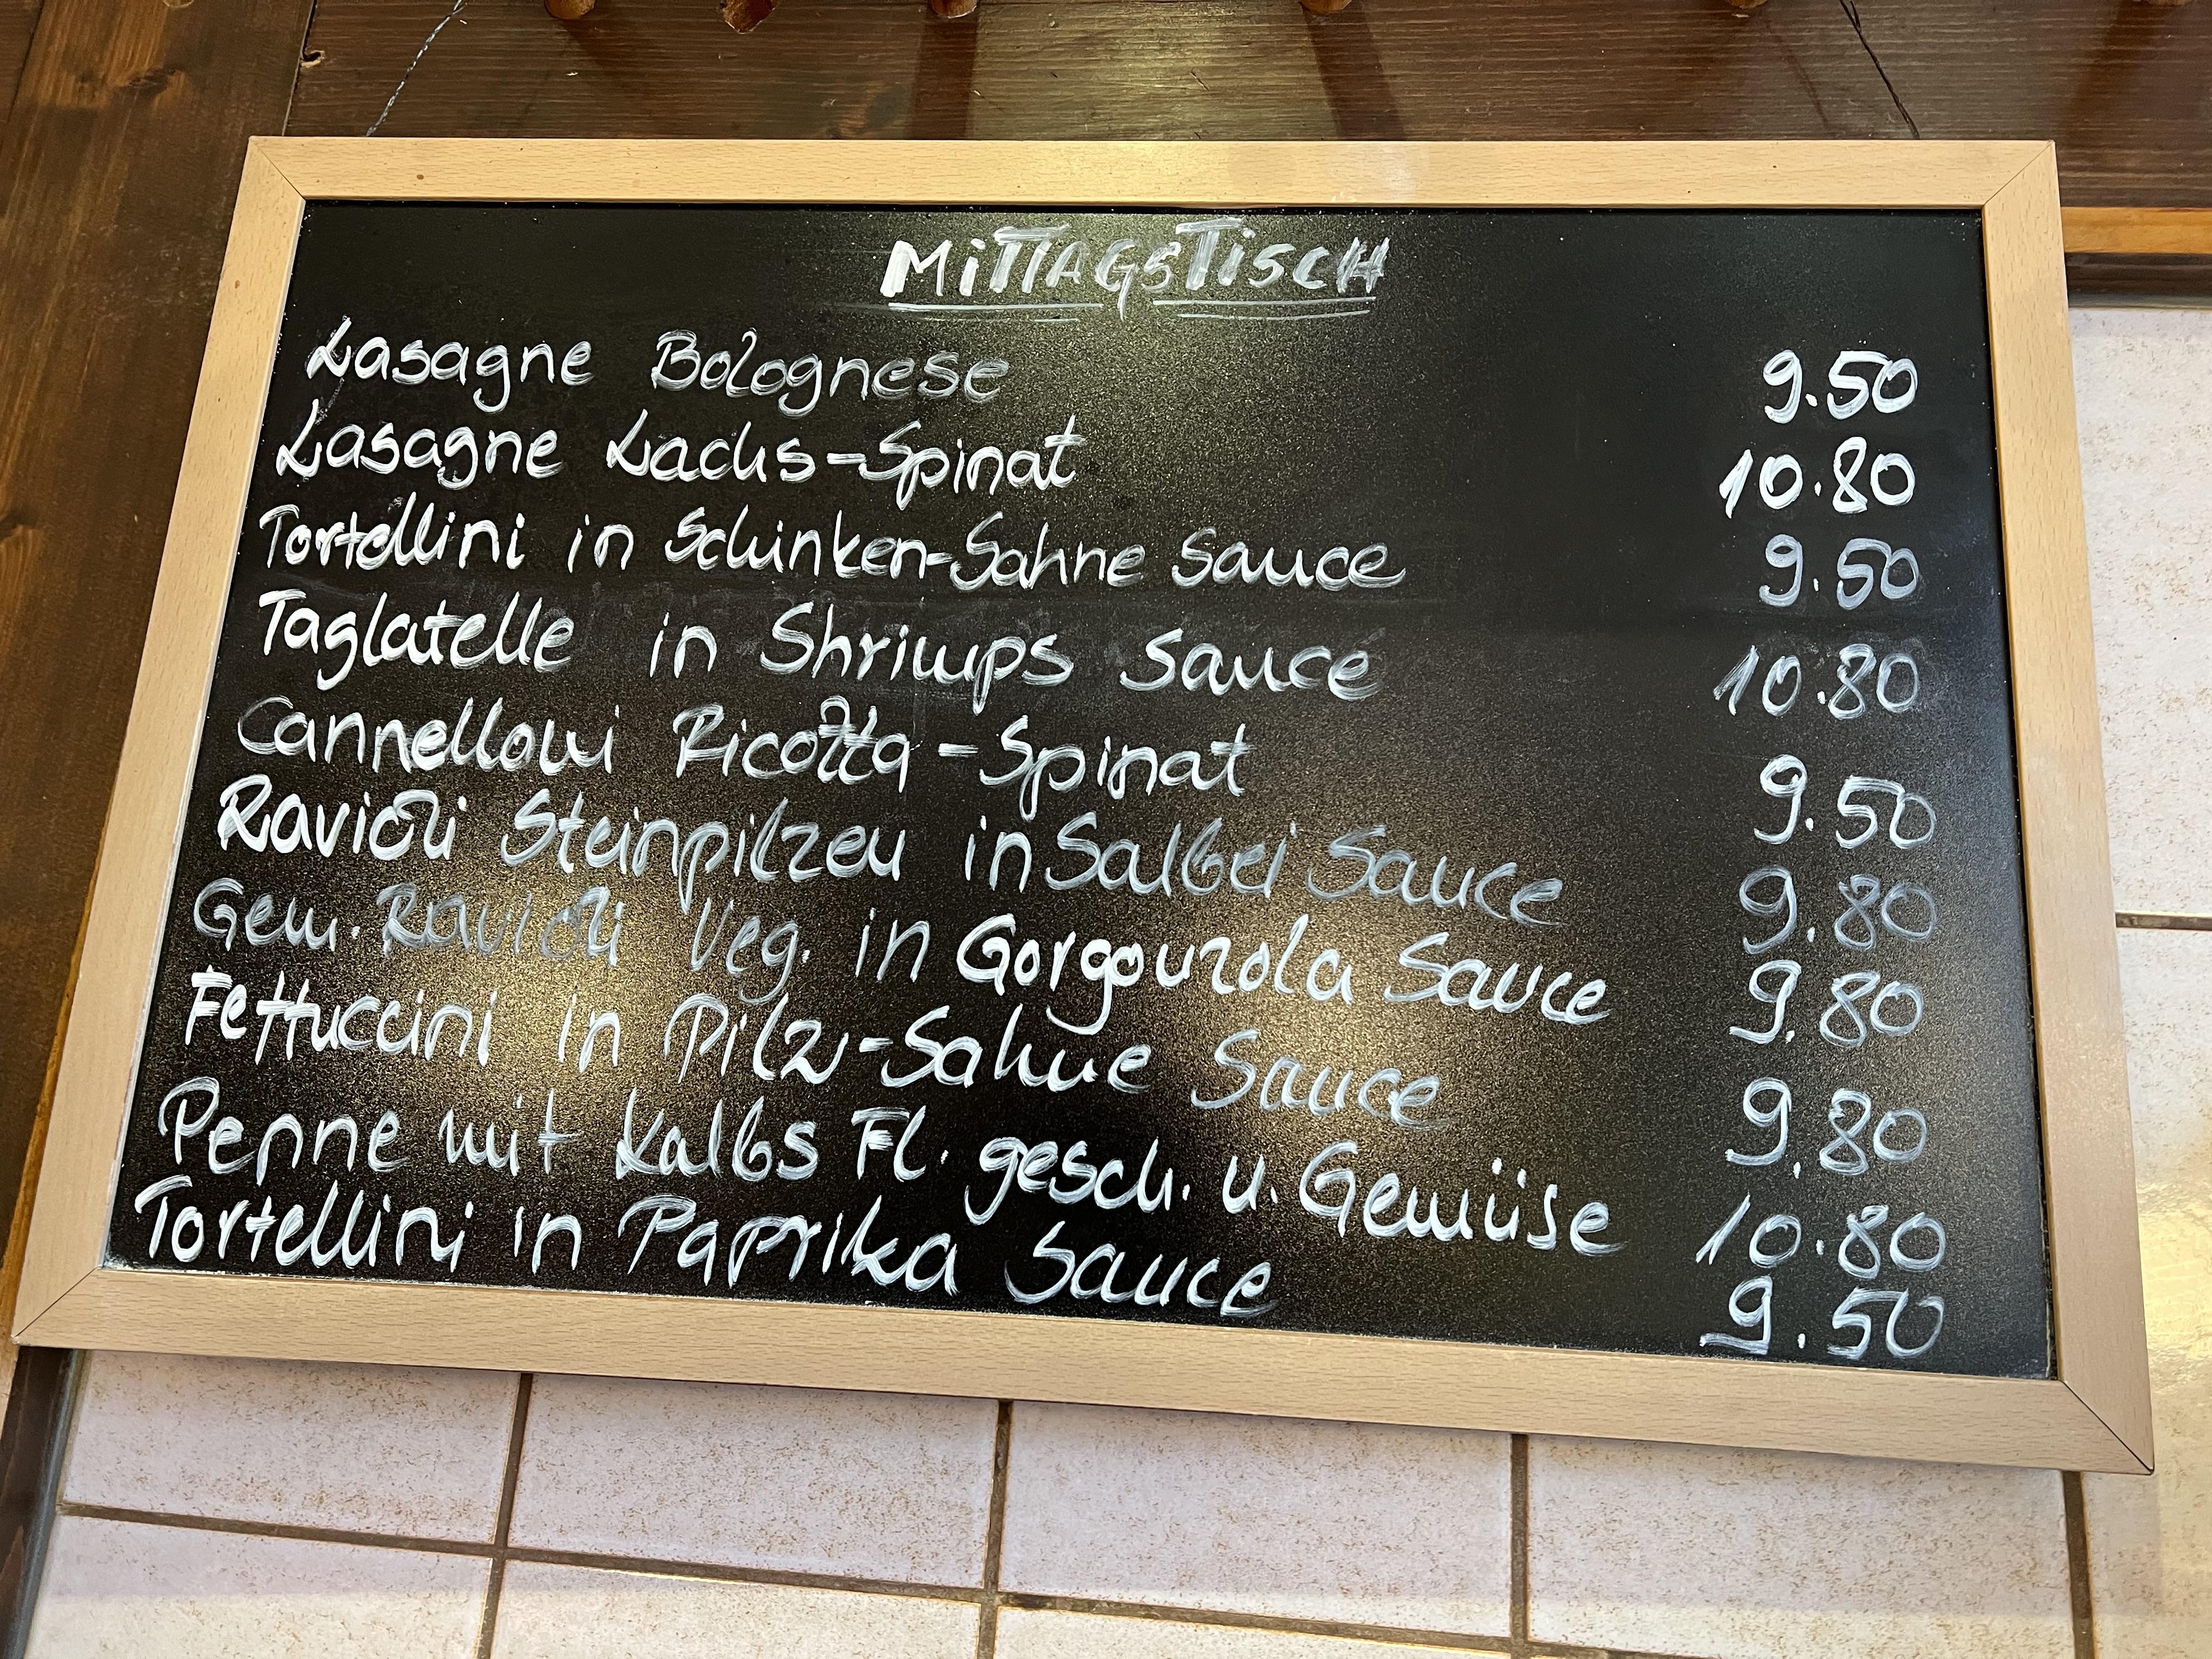 MiTTAGSTiSCH
Lasagne Bolognese 9.50
Lasagne Lachs-Spinat 10.80
Tortellini in Schinken-Sahne Sauce 9.50
Taglatelle in Shrimps Sauce 10.80
Cannelloni Ricotta-Spinat 9.50
Ravioli Steinpilzen in Salbei Sauce 9.80
Gem. Ravioli Veg. in Gorgonzola Sauce 9.80
Fettuccini in Pilz-Sahne Sauce 9.80
Penne mit Kalbs Fl. gesch. u. Gemüse 10.80
Tortellini in Paprika Sauce 9.50